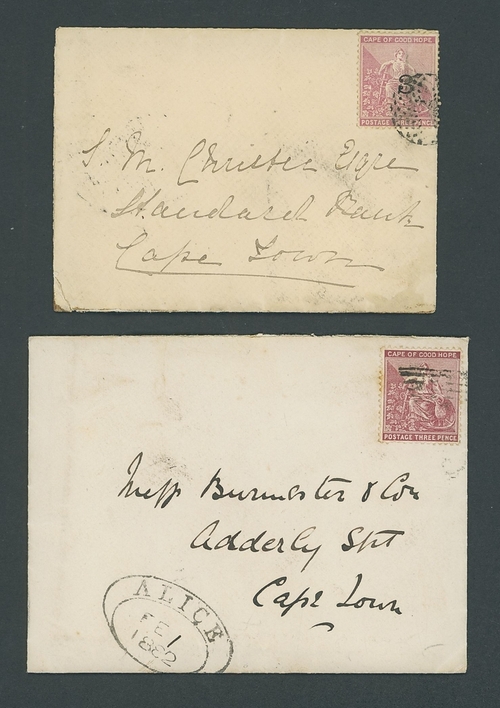 CAPE OF GOOD HOPE
3
POSTAGE THREE PENCE
S. M. Christie Esqre
Standard Bank
Cape Town
CAPE OF GOOD HOPE
POSTAGE THREE PENCE
Messs Burmester & Con
Adderly Stt
Cape Town
ALICE
FE 1
1882